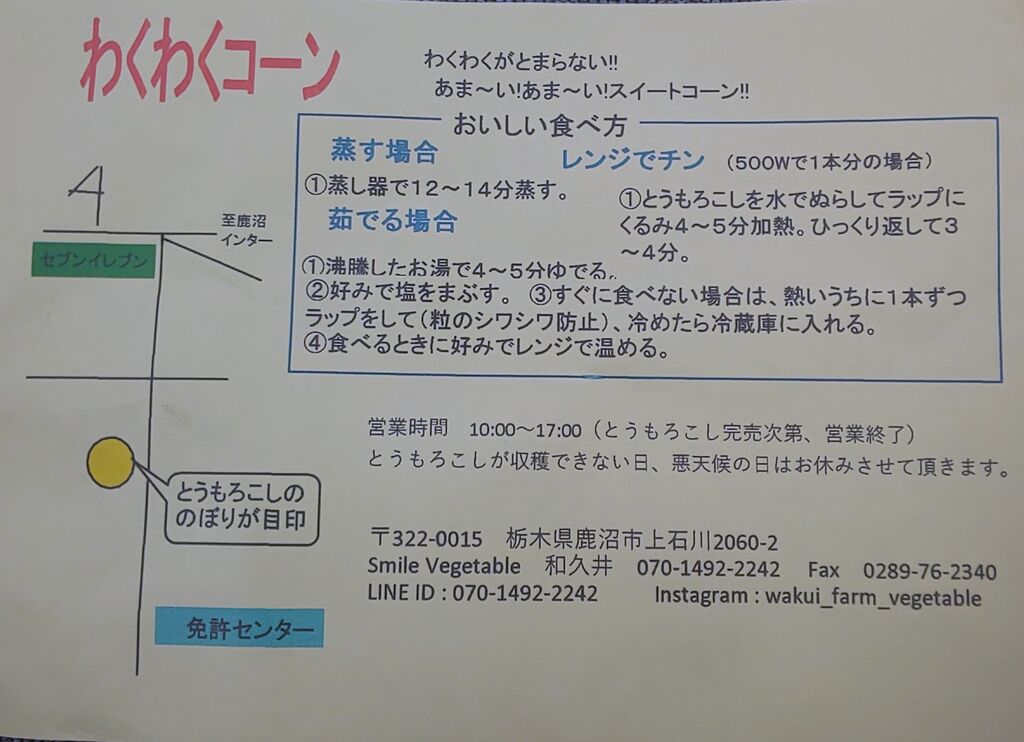 わくわくコーン
わくわくがとまらない!!
あま～い!あま～い!スイートコーン!!
おいしい食べ方
蒸す場合
①蒸し器で12～14分蒸す。
レンジでチン (500Wで1本分の場合)
①とうもろこしを水でぬらしてラップに
くるみ4～5分加熱。ひっくり返して3
～4分。
茹でる場合
①沸騰したお湯で4～5分ゆでる。
②好みで塩をまぶす。 ③すぐに食べない場合は、熱いうちに1本ずつ
ラップをして(粒のシワシワ防止)、冷めたら冷蔵庫に入れる。
④食べるときに好みでレンジで温める。
4
至鹿沼
インター
セブンイレブン
とうもろこしの
のぼりが目印
免許センター
営業時間 10:00～17:00（とうもろこし完売次第、営業終了）
とうもろこしが収穫できない日、悪天候の日はお休みさせて頂きます。
〒322-0015 栃木県鹿沼市上石川2060-2
Smile Vegetable 和久井 070-1492-2242 Fax 0289-76-2340
LINE ID : 070-1492-2242 Instagram : wakui_farm_vegetable